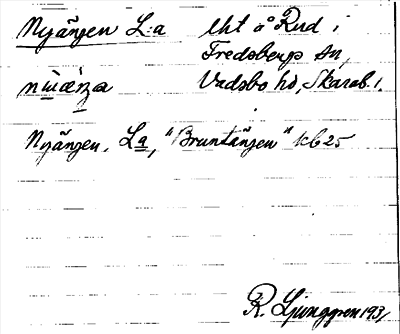 Nyängen L:a lht å Rud i
Fredsberg sn,
Vadsbo hd, Skarab. l.
Nyängen, La, "Bruntängen" kb 25
R. Ljunggren 1931